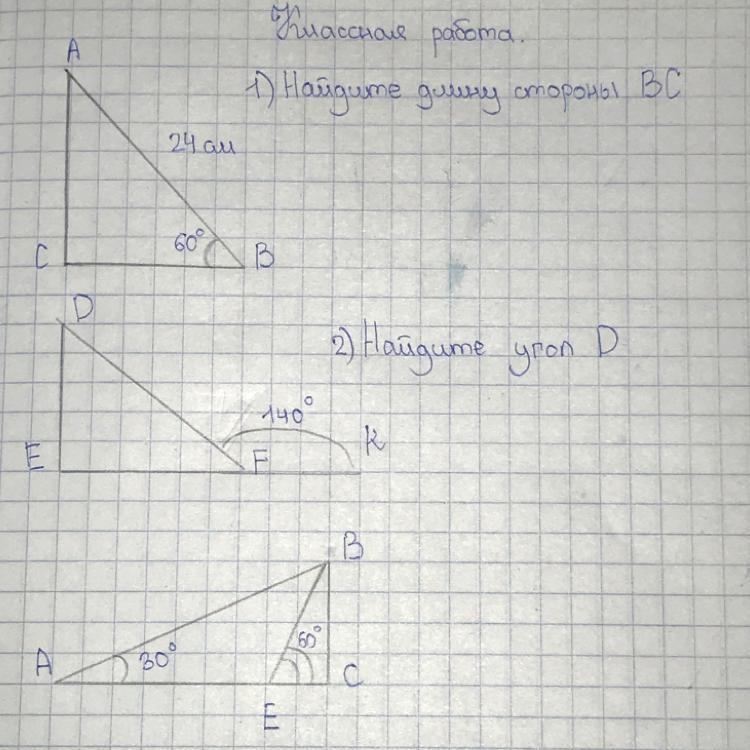 Классная работа.
A
1) Найдите длину стороны BC
24 см
60°
C
B
D
2) Найдите угол D
140°
E
F
K
B
A
30°
60°
C
E